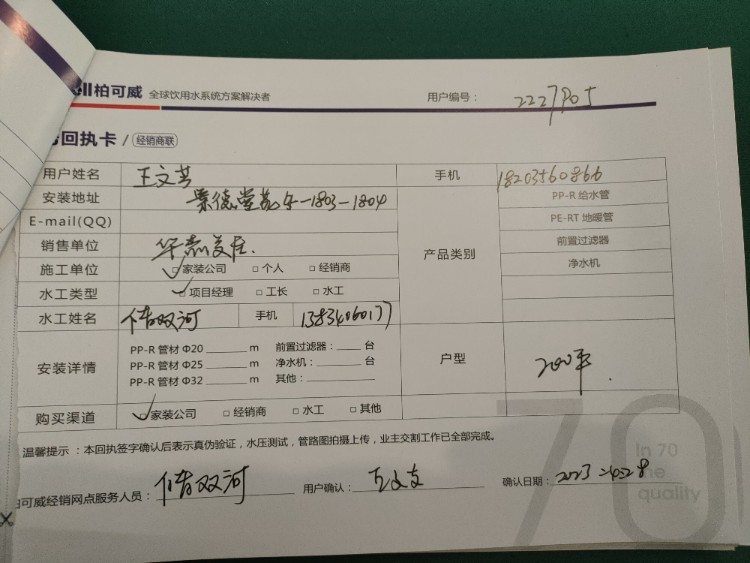 ell柏可威 全球饮用水系统方案解决者 用户编号：
回执卡 / 经销商联
用户姓名 王文芳 手机 18203560866
安装地址 1803-1804 产品类别 PP-R 给水管
E-mail(QQ) PE-RT 地暖管
销售单位 前置过滤器
施工单位 □家装公司 □个人 □经销商 净水机
水工类型 □项目经理 □工长 □水工
水工姓名 双河 手机 13834060177
安装详情 PP-R 管材 Φ20 m 前置过滤器： 台 户型 200平
PP-R 管材 Φ25 m 净水机： 台
PP-R 管材 Φ32 m 其他：
购买渠道 □家装公司 □经销商 □水工 □其他
温馨提示：本回执签字确认后表示真伪验证，水压测试，管路图拍摄上传，业主交割工作已全部完成。
柏可威经销网点服务人员： 双河 用户确认： 确认日期： 2023
70
In 70
the
quality